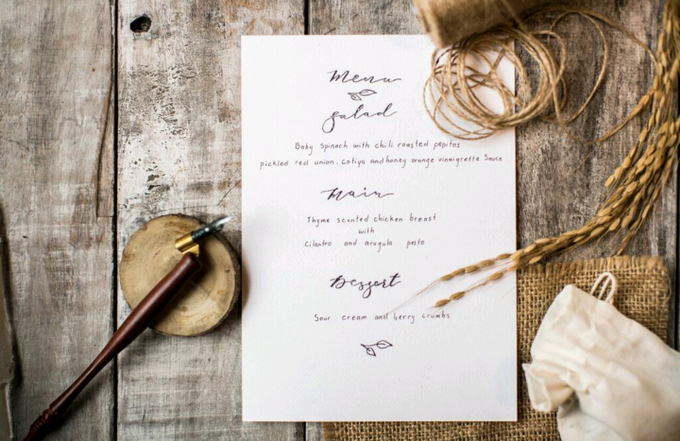 Menu
Salad
Baby Spinach with chili roasted pepitas
pickled red union. Cotiya and honey orange vinnigrette Sauce
Main
Thyme scented chicken breast
with
Cilantro and arugula pesto
Dessert
Sour cream and berry crumbs